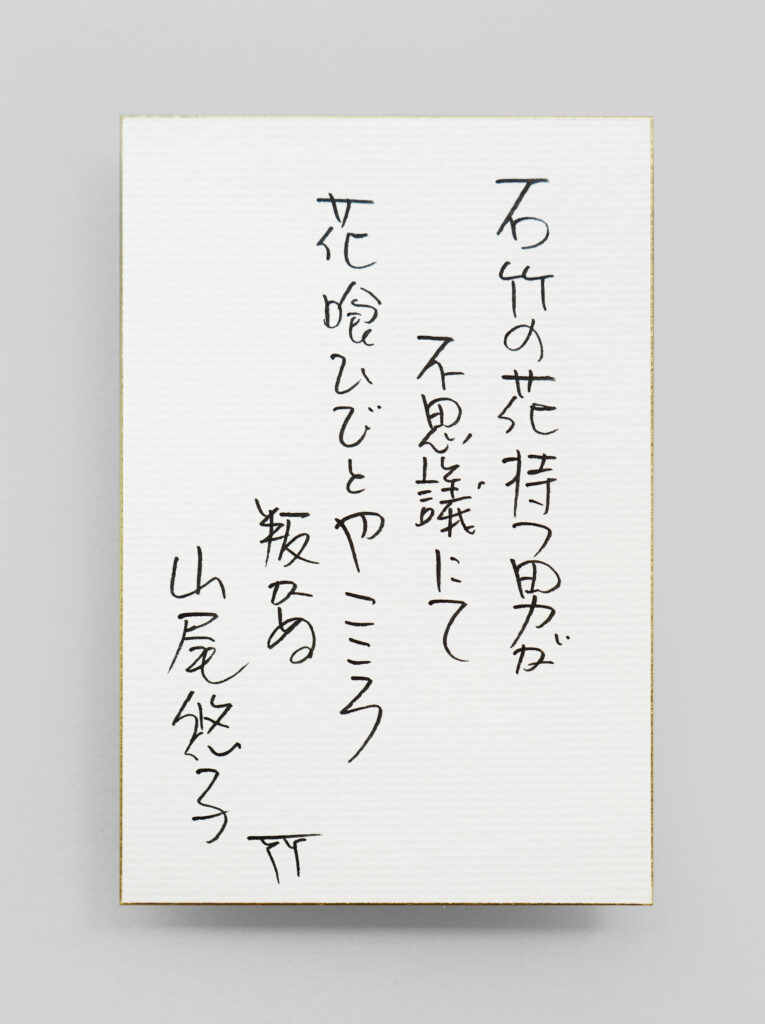 石竹の花持つ男が
不思議にて
花喰ひびとやこころ
叛かぬ
山尾悠子